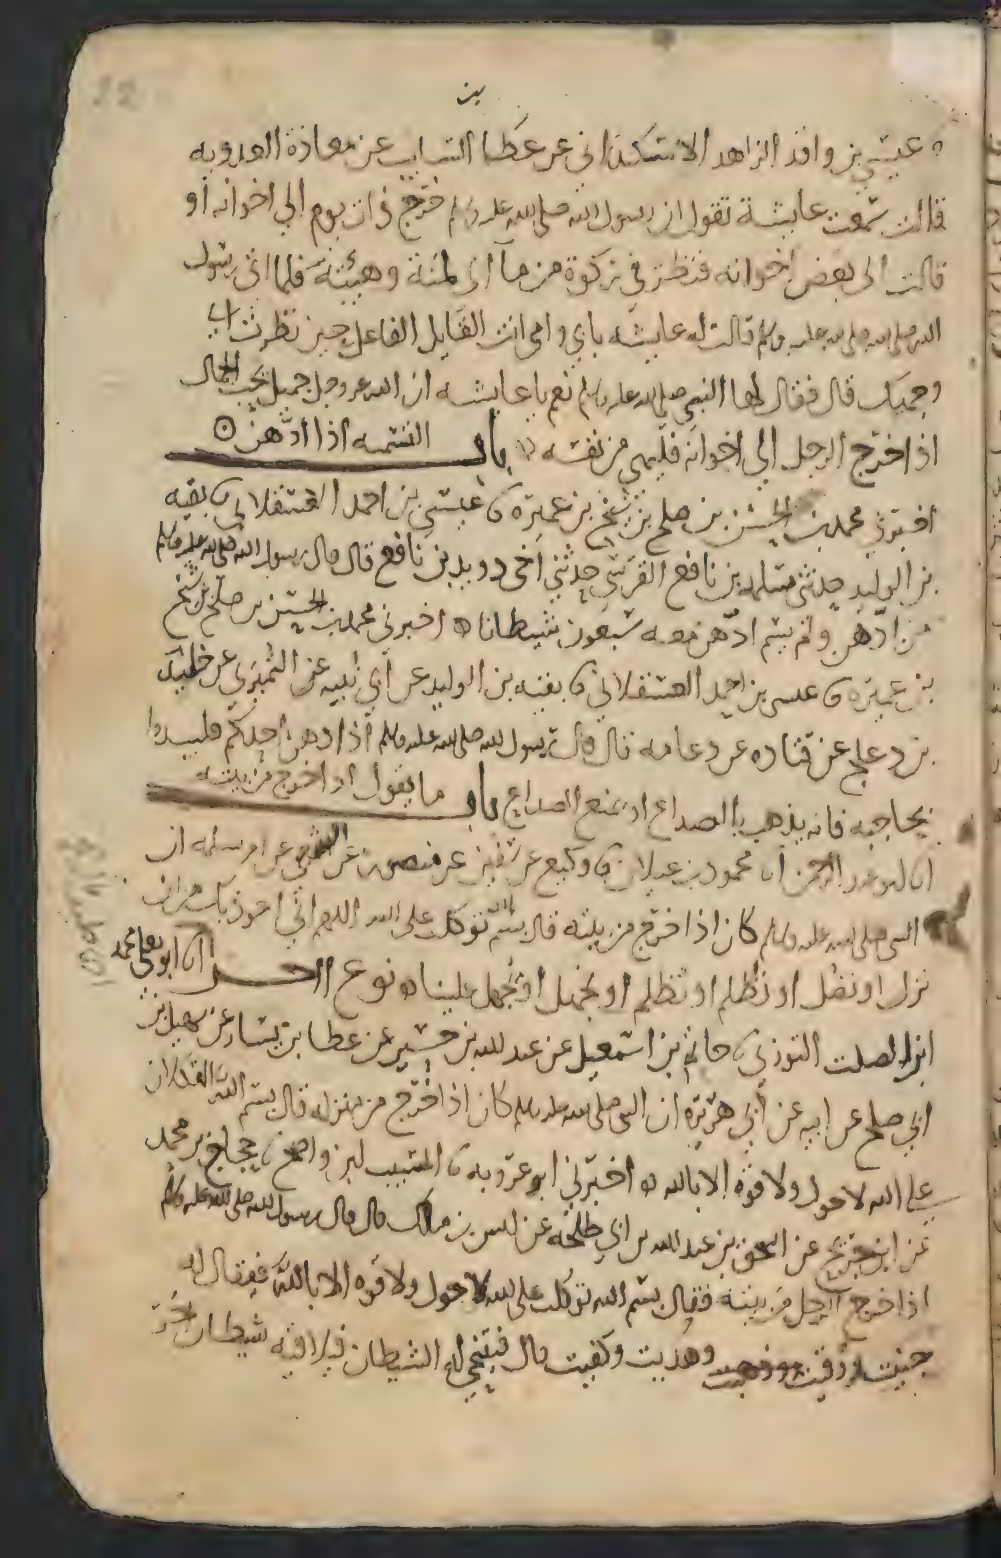 عيسى بن واقد الزاهد الاسكندراني عن عطا السايب عن معاذة العدويه
قالت سمعت عايشة تقول ان رسول الله صلى الله عليه وسلم خرج ذات يوم الى اخوانه او
قالت الى بعض اخوانه فنظر في ركوة من ما الى لمته وهيئته فلما اتى رسول
الله صلى الله عليه وسلم قالت له عايشه بابي وامي انت القايل الفاعل حين نظرت الى
قال فقال لها النبي صلى الله عليه وسلم نعم يا عايشه ان الله عز وجل جميل يحب الجمال
اذا خرج الرجل الى اخوانه فليهيئ من نفسه باب التسميه اذا ادهن
اخبرني محمد بن الحسن بن صلح بن شيخ بن عميره عيسى بن احمد العسقلاني بقيه
بن الوليد حدثني سلمه بن نافع القرشي حدثني اخي دويد بن نافع قال قال رسول الله صلى الله عليه وسلم
من ادهن ولم يسم ادهن معه سبعون شيطانا اخبرني محمد بن الحسن بن صلح بن شيخ
بن عميره عيسى بن احمد العسقلاني بقيه بن الوليد عن ابي نبيه عن خليد
بن دعلج عن قتاده عن دعامه قال قال رسول الله صلى الله عليه وسلم اذا ادهن احدكم فليبدا
بحاجبه فانه يذهب بالصداع او يمنع الصداع باب ما يقول اذا خرج من بيته
انا ابو عبد الرحمن انا محمود بن غيلان وكيع عن سفين عن منصور عن الشعبي عن ام سلمه ان
النبي صلى الله عليه وسلم كان اذا خرج من بيته قال بسم الله توكلت على الله اللهم اني اعوذ بك من ان
نزل او نضل او نظلم او نظلم او نجهل او يجهل علينا نوع اخر انا ابو يعلى محمد
ابن الصلت التوزي حاتم بن اسمعيل عن عبد الله بن حسين عن عطا بن يسار عن سهيل بن
ابي صلح عن ابيه عن ابي هريره ان النبي صلى الله عليه وسلم كان اذا خرج من منزله قال بسم الله التكلان
على الله لا حول ولا قوه الا بالله اخبرني ابو عروبه المسيب بن واضح حجاج بن محمد
عن ابن جريج عن اسحق بن عبد الله بن ابي طلحه عن انس بن ملك قال قال رسول الله صلى الله عليه وسلم
اذا خرج الرجل من بيته فقال بسم الله توكلت على الله لا حول ولا قوه الا بالله فيقال له
وهديت وكفيت قال فيتنحى له الشيطان فيلاقيه شيطان اخر